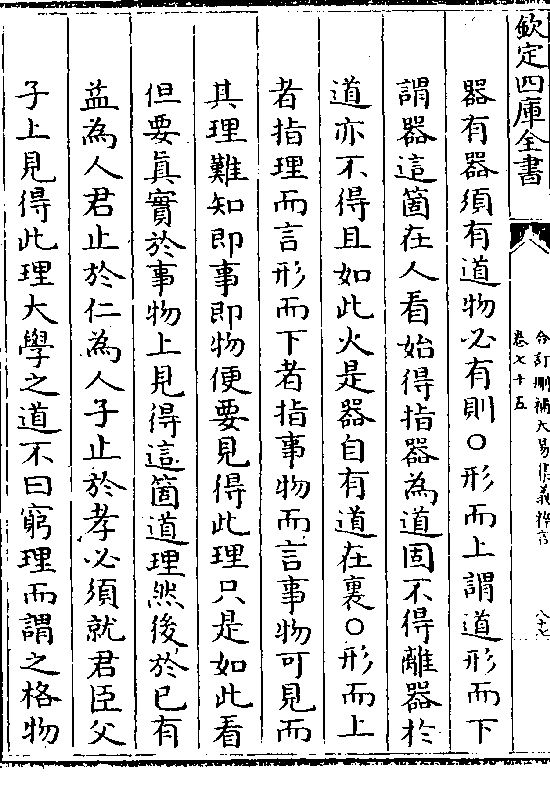 欽定四庫全書
合訂刪補大易集義粹言
卷七十五
八十七
器有器須有道物必有則○形而上謂道形而下
謂器這箇在人看始得指器為道固不得離器於
道亦不得且如此火是器自有道在裏○形而上
者指理而言形而下者指事物而言事物可見而
其理難知即事即物便要見得此理只是如此看
但要真實於事物上見得這箇道理然後於已有
益為人君止於仁為人子止於孝必須就君臣父
子上見得此理大學之道不曰窮理而謂之格物